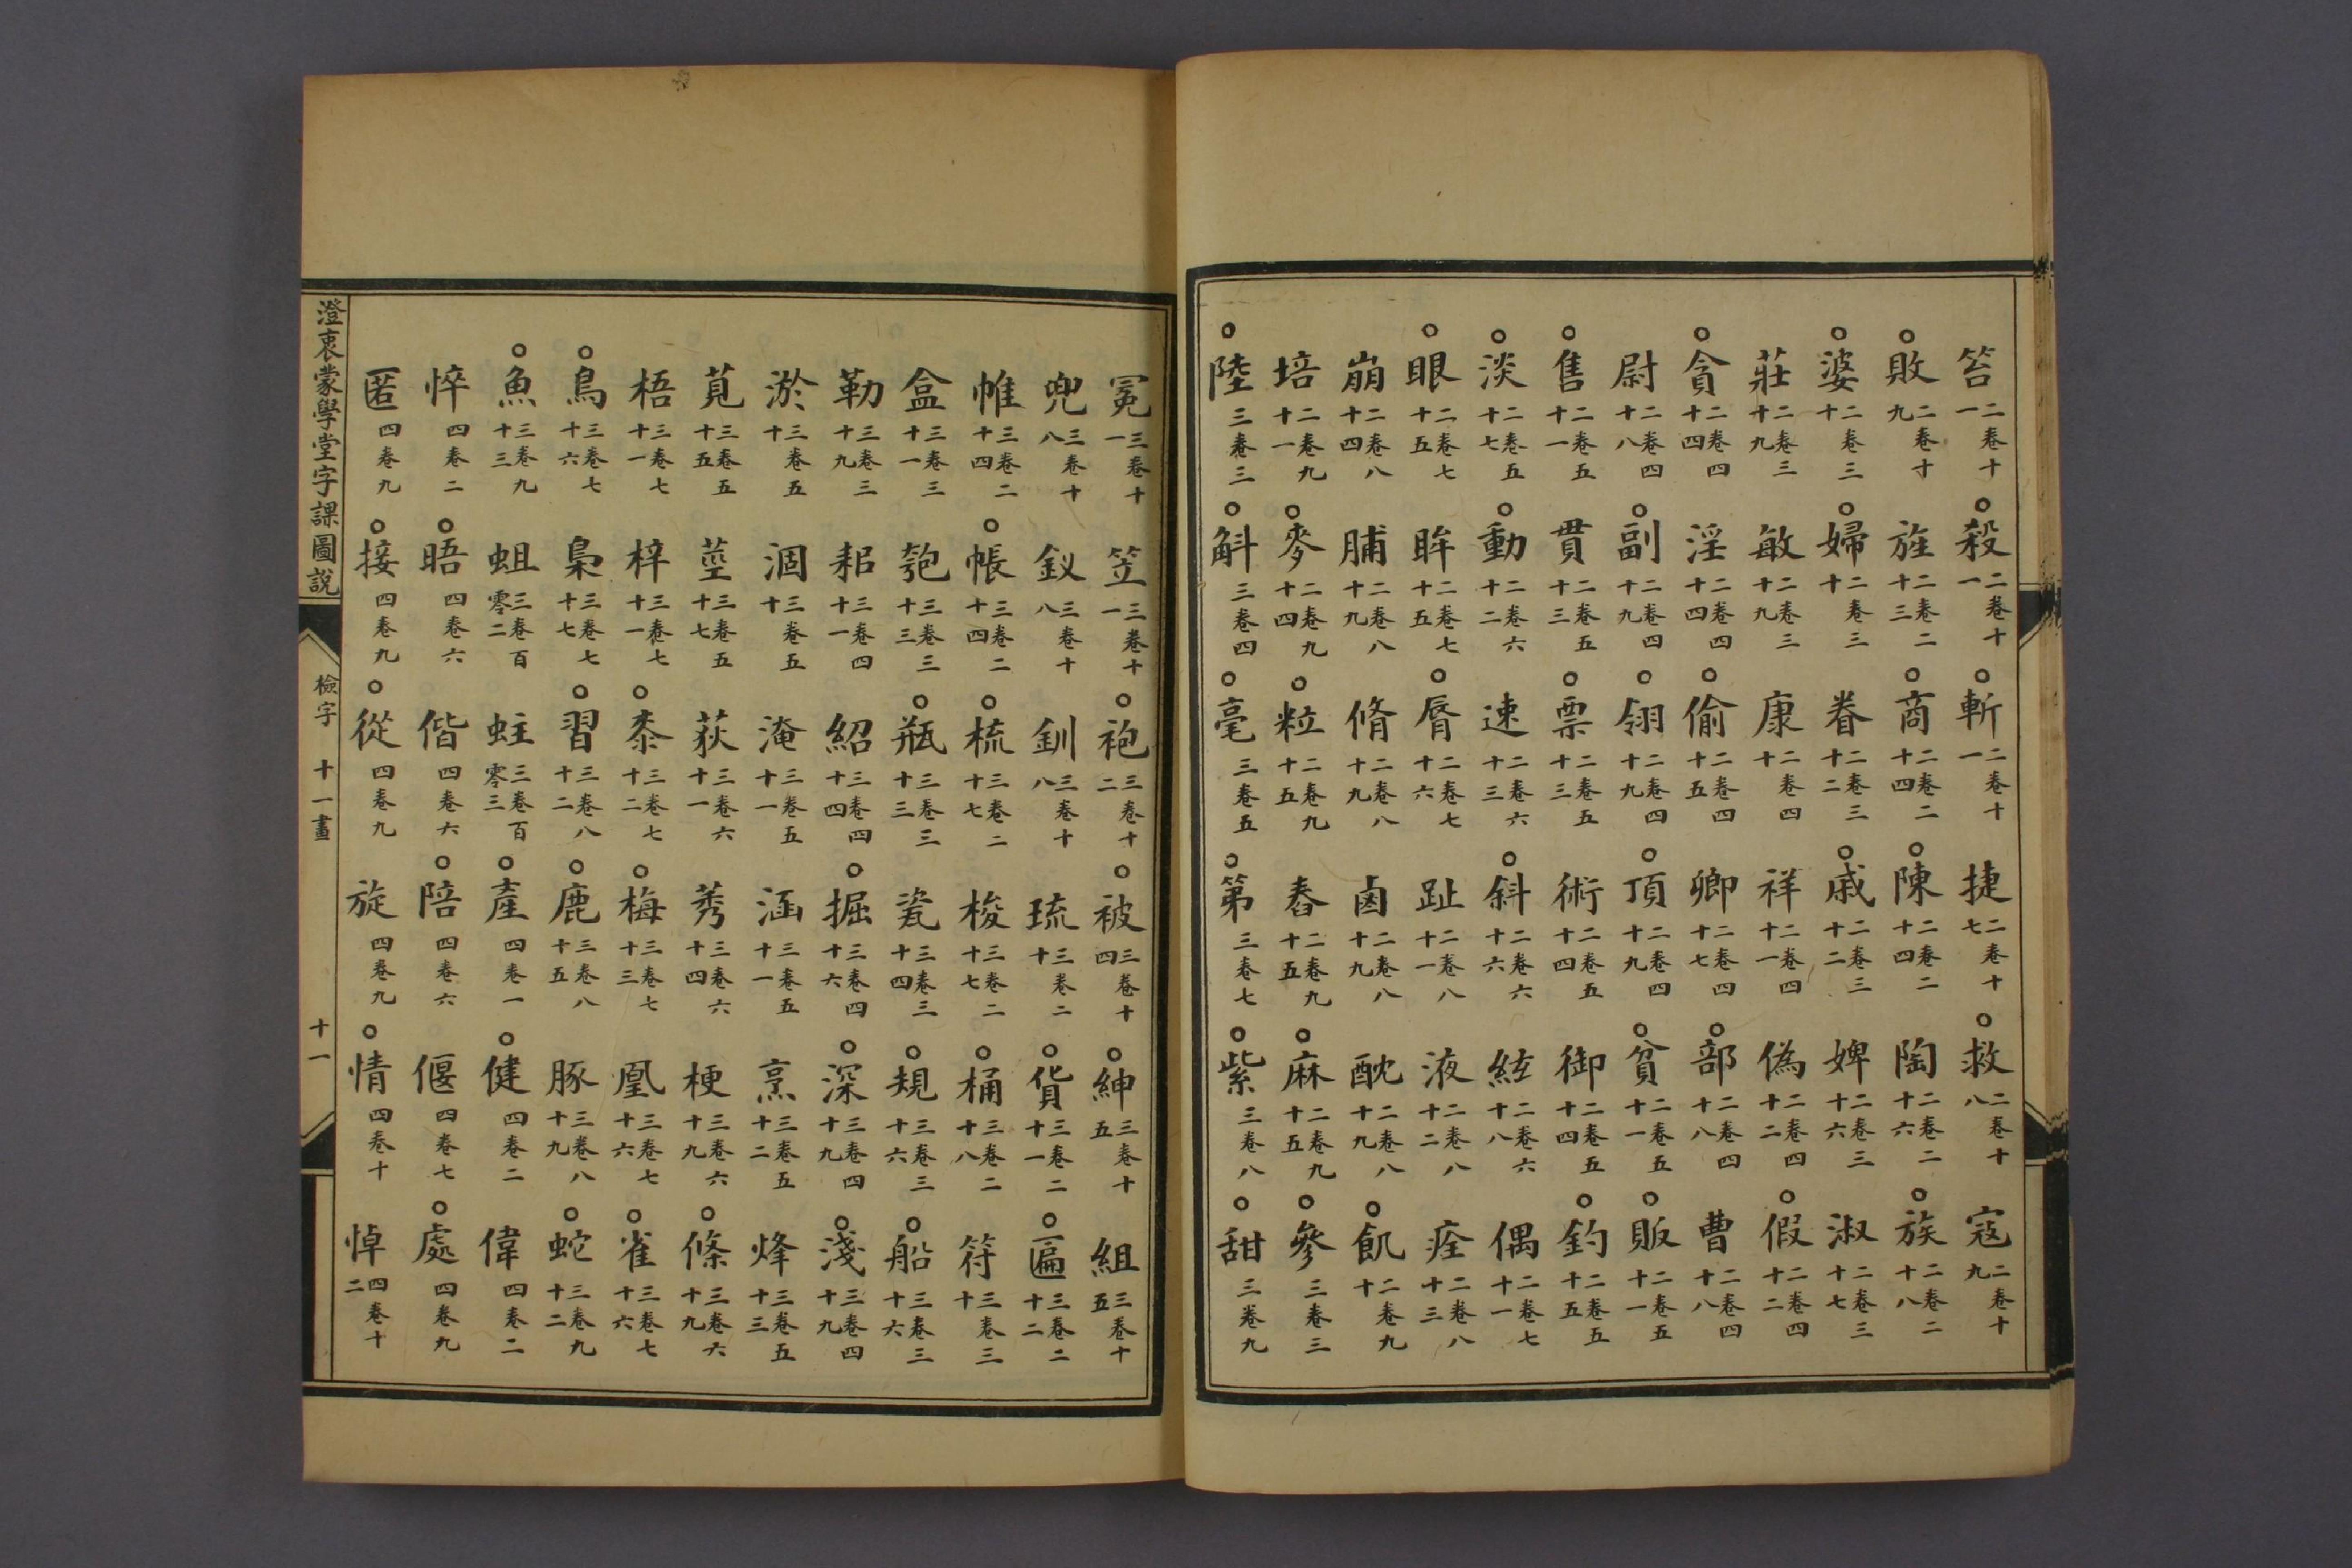 笞二卷十一 ○殺二卷十一 ○斬二卷十一 捷二卷十七 ○救二卷十八 寇二卷十九
○敗二卷十九 旌二卷二十三 ○商二卷二十四 ○陳二卷二十四 陶二卷二十六 ○族二卷二十八
○婆二卷三十 ○婦二卷三十 眷二卷三十二 ○戚二卷三十二 婢二卷三十六 淑二卷三十七
莊二卷三十九 敏二卷三十九 康二卷四十 祥二卷四十一 偽二卷四十二 ○假二卷四十二
○貪二卷四十四 淫二卷四十四 ○偷二卷四十五 卿二卷四十七 ○部二卷四十八 曹二卷四十八
尉二卷四十八 ○副二卷四十九 ○翎二卷四十九 ○頂二卷四十九 ○貧二卷五十一 ○販二卷五十一
○售二卷五十一 貫二卷五十三 ○票二卷五十三 術二卷五十四 御二卷五十四 ○釣二卷五十五
○淡二卷五十七 ○動二卷六十二 速二卷六十三 ○斜二卷六十六 絃二卷六十八 偶二卷七十一
○眼二卷七十五 眸二卷七十五 ○脣二卷七十六 趾二卷八十一 液二卷八十二 痊二卷八十三
崩二卷八十四 脯二卷八十九 脩二卷八十九 鹵二卷八十九 酖二卷八十九 ○飢二卷九十
培二卷九十一 ○麥二卷九十四 ○粒二卷九十五 舂二卷九十五 ○麻二卷九十五 ○參三卷三
○陸三卷三 ○斛三卷四 ○毫三卷五 ○第三卷七 ○紫三卷八 ○甜三卷九
冕三卷十一 笠三卷十一 ○袍三卷十二 ○被三卷十四 ○紳三卷十五 組三卷十五
兜三卷十八 釵三卷十八 釧三卷十八 琉三卷二十 ○貨三卷二十一 ○匾三卷二十二
帷三卷二十四 ○帳三卷二十四 ○梳三卷二十七 梭三卷二十七 ○桶三卷二十八 符三卷三十
盒三卷三十一 匏三卷三十三 ○瓶三卷三十三 瓷三卷三十四 ○規三卷三十六 ○船三卷三十六
勒三卷三十九 耜三卷四十一 紹三卷四十四 ○掘三卷四十六 ○深三卷四十九 ○淺三卷四十九
淤三卷五十 涸三卷五十 淹三卷五十一 涵三卷五十一 烹三卷五十二 烽三卷五十三
莧三卷五十五 莖三卷五十七 荻三卷六十一 莠三卷六十四 梗三卷六十九 ○條三卷六十九
梧三卷七十一 梓三卷七十一 ○桼三卷七十二 ○梅三卷七十三 凰三卷七十六 ○雀三卷七十六
○鳥三卷七十六 梟三卷七十七 ○習三卷八十二 ○鹿三卷八十五 豚三卷八十九 ○蛇三卷九十二
○魚三卷九十三 蛆三卷百零二 蛀三卷百零三 ○產四卷一 ○健四卷二 偉四卷二
悴四卷二 ○晤四卷六 偕四卷六 ○陪四卷六 偃四卷七 ○處四卷九
匿四卷九 ○接四卷九 ○從四卷九 旋四卷九 ○情四卷十 悼四卷十二
澄衷蒙學堂字課圖說 檢字 十一畫 十一